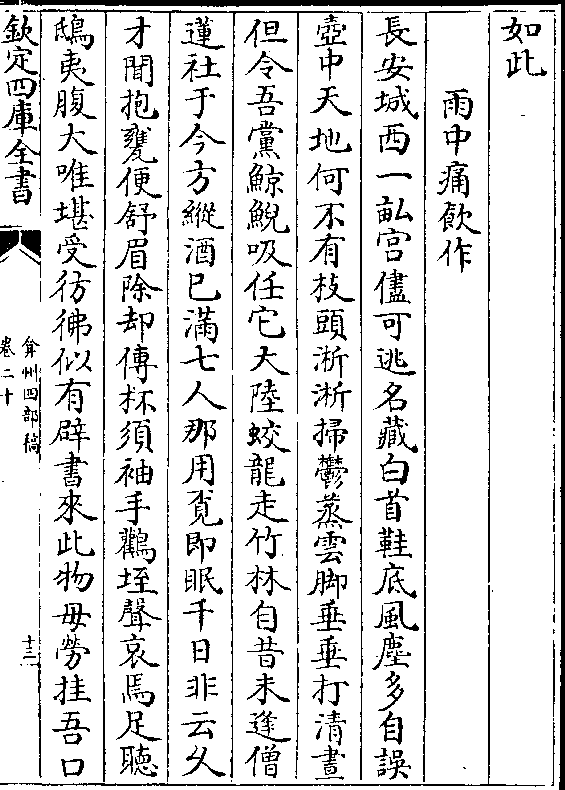 如此
雨中痛飲作
長安城西一畝宫儘可逃名藏白首鞋底風塵多自誤
壺中天地何不有枝頭淅淅掃鬱蒸雲脚垂垂打清晝
但令吾黨鯨鯢吸任它大陸蛟龍走竹林自昔未逢僧
蓮社于今方縱酒已滿七人那用覔即眠千日非云久
才聞抱甕便舒眉除却傳杯須袖手鸛垤聲哀焉足聽
鴟夷腹大唯堪受彷彿似有辟書來此物毋勞挂吾口
欽定四庫全書
弇州四部稿
卷二十
十三